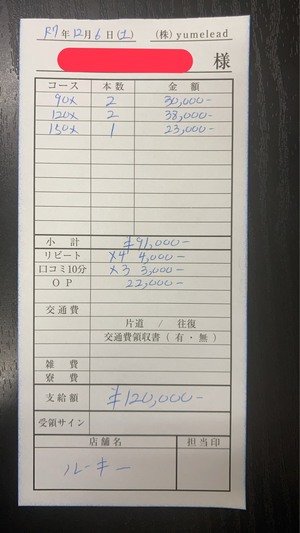 R7年12月6日(土) (株)yumelead
様
コース 本数 金額
90× 2 30,000-
120× 2 38,000-
150× 1 23,000-
小計 ¥91,000-
リピート ×4 4,000-
口コミ10分 ×3 3,000-
OP 22,000-
交通費
片道 / 往復
交通費領収書(有・無)
雑費
寮費
支給額 ¥120,000-
受領サイン
店舗名 担当印
ルーキー